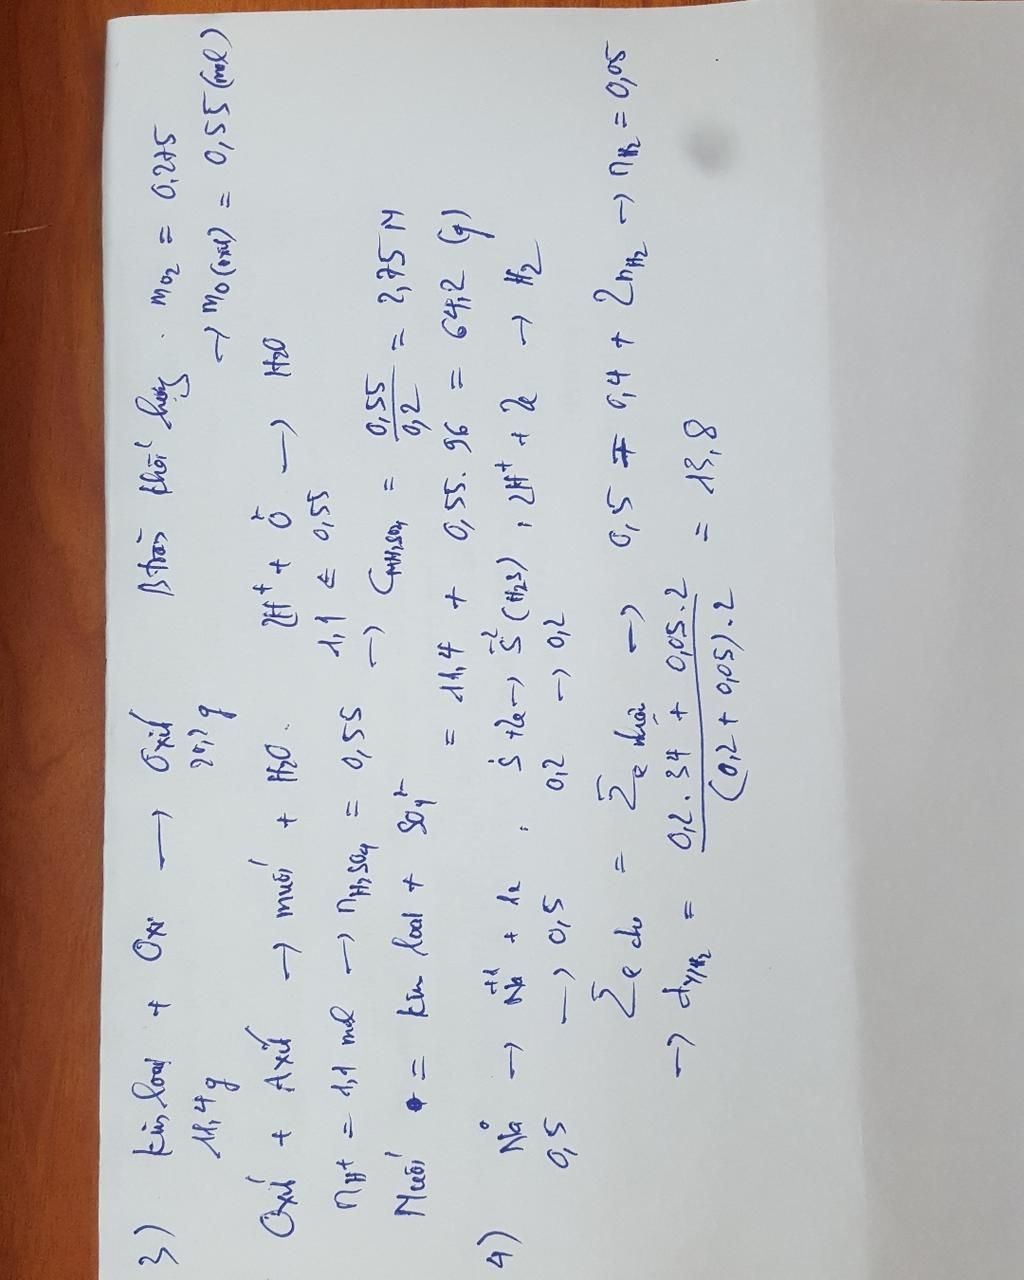 3) Kim loại + Oxi → Oxit Btoàn khối lượng. mO2 = 0,275
11,4g 20,2g → mO(oxit) = 0,55 (mol)
Oxit + Axit → muối + H2O. 2H+ + O → H2O
1,1 ← 0,55
nH+ = 1,1 mol → nH2SO4 = 0,55 → CMH2SO4 = 0,55/0,2 = 2,75 M
Muối = kim loại + SO4 2- = 11,4 + 0,55.96 = 64,2 (g)
4) Na → Na+1 + 1e ; S + 2e → S-2 (H2S) ; 2H+ + 2e → H2
0,5 → 0,5 0,2 → 0,2
Σe cho = Σe nhận → 0,5 = 0,4 + 2nH2 → nH2 = 0,05
→ dY/H2 = (0,2.34 + 0,05.2)/((0,2 + 0,05).2) = 13,8